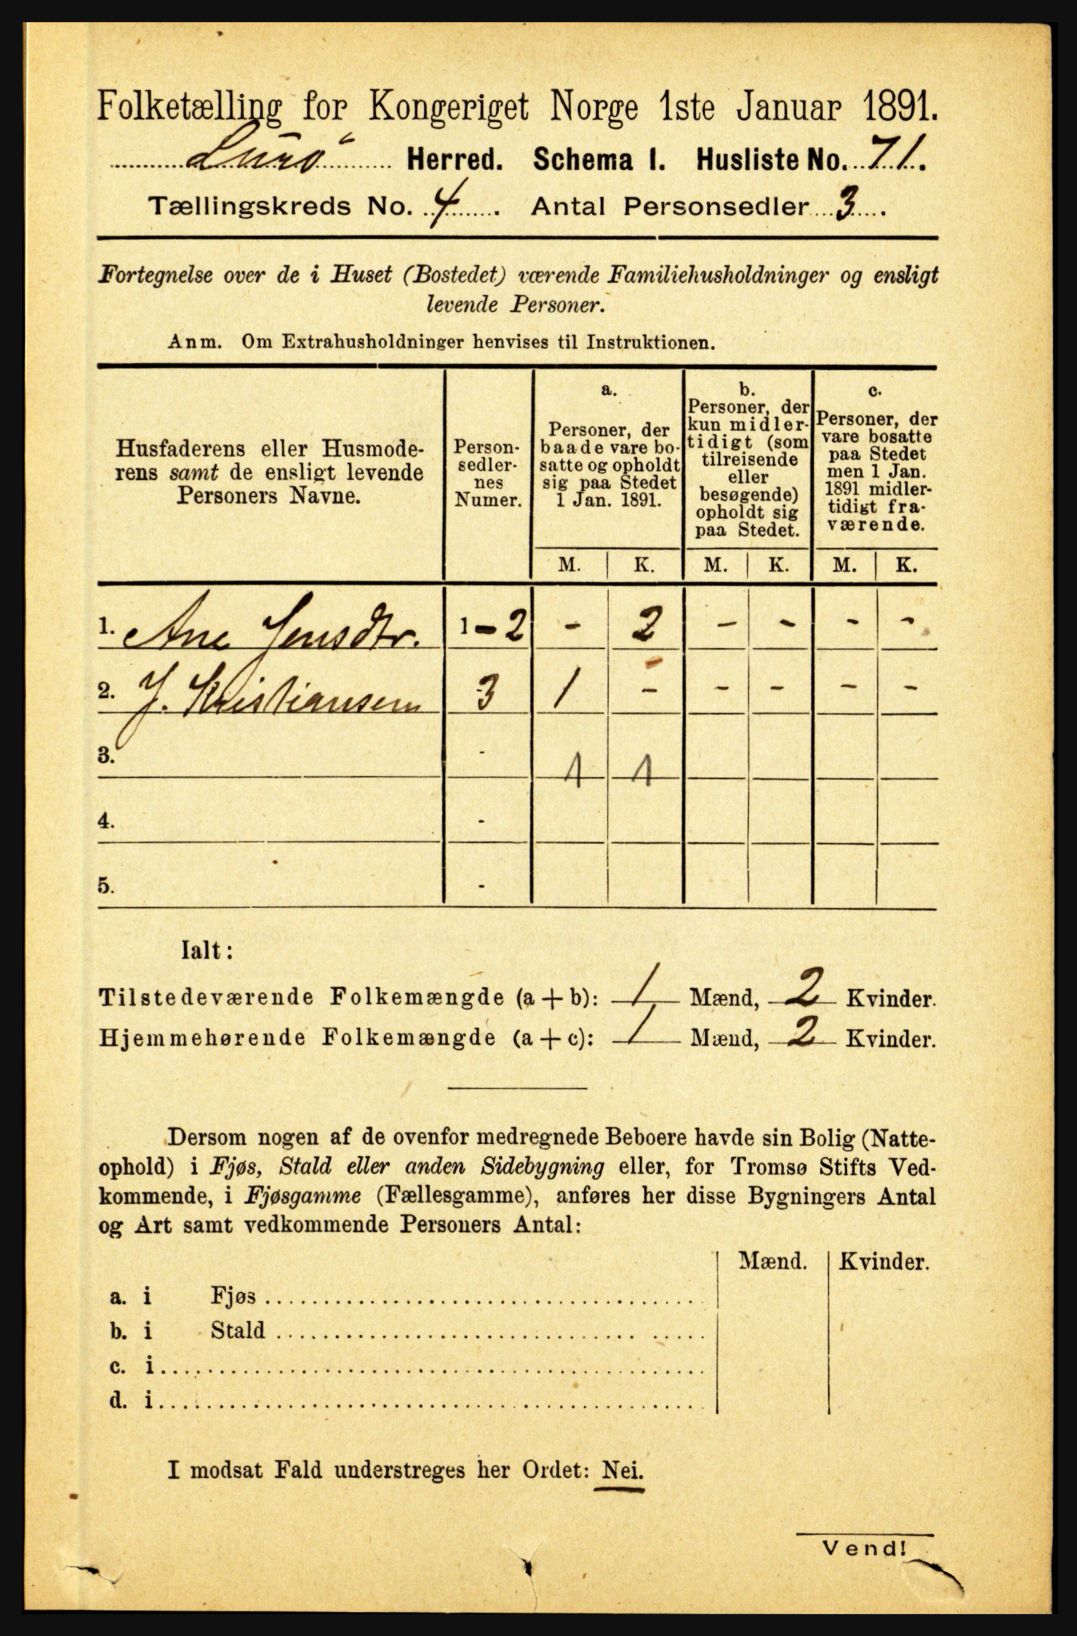 Folketælling for Kongeriget Norge 1ste Januar 1891.
Lurö Herred. Schema I. Husliste No. 71.
Tællingskreds No. 4. Antal Personsedler 3.
Fortegnelse over de i Huset (Bostedet) værende Familiehusholdninger og ensligt
levende Personer.
Anm. Om Extrahusholdninger henvises til Instruktionen.
Husfaderens eller Husmode-
rens samt de ensligt levende
Personers Navne.
Person-
sedler-
nes
Numer.
a.
Personer, der
baade vare bo-
satte og opholdt
sig paa Stedet
1 Jan. 1891.
b.
Personer, der
kun midler-
tidigt (som
tilreisende
eller
besøgende)
opholdt sig
paa Stedet.
c.
Personer, der
vare bosatte
paa Stedet
men 1 Jan.
1891 midler-
tidigt fra-
værende.
M. K. M. K. M. K.
1. Ane Jensdtr. 1 - 2 - 2 - - - -
2. J. Kristiansen 3 1 - - - - -
3. - 1 1
4. -
5. -
Ialt:
Tilstedeværende Folkemængde (a + b): 1 Mænd, 2 Kvinder.
Hjemmehørende Folkemængde (a + c): 1 Mænd, 2 Kvinder.
Dersom nogen af de ovenfor medregnede Beboere havde sin Bolig (Natte-
ophold) i Fjøs, Stald eller anden Sidebygning eller, for Tromsø Stifts Ved-
kommende, i Fjøsgamme (Fællesgamme), anføres her disse Bygningers Antal
og Art samt vedkommende Personers Antal:
Mænd. Kvinder.
a. i Fjøs
b. i Stald
c. i
d. i
I modsat Fald understreges her Ordet: Nei.
Vend!